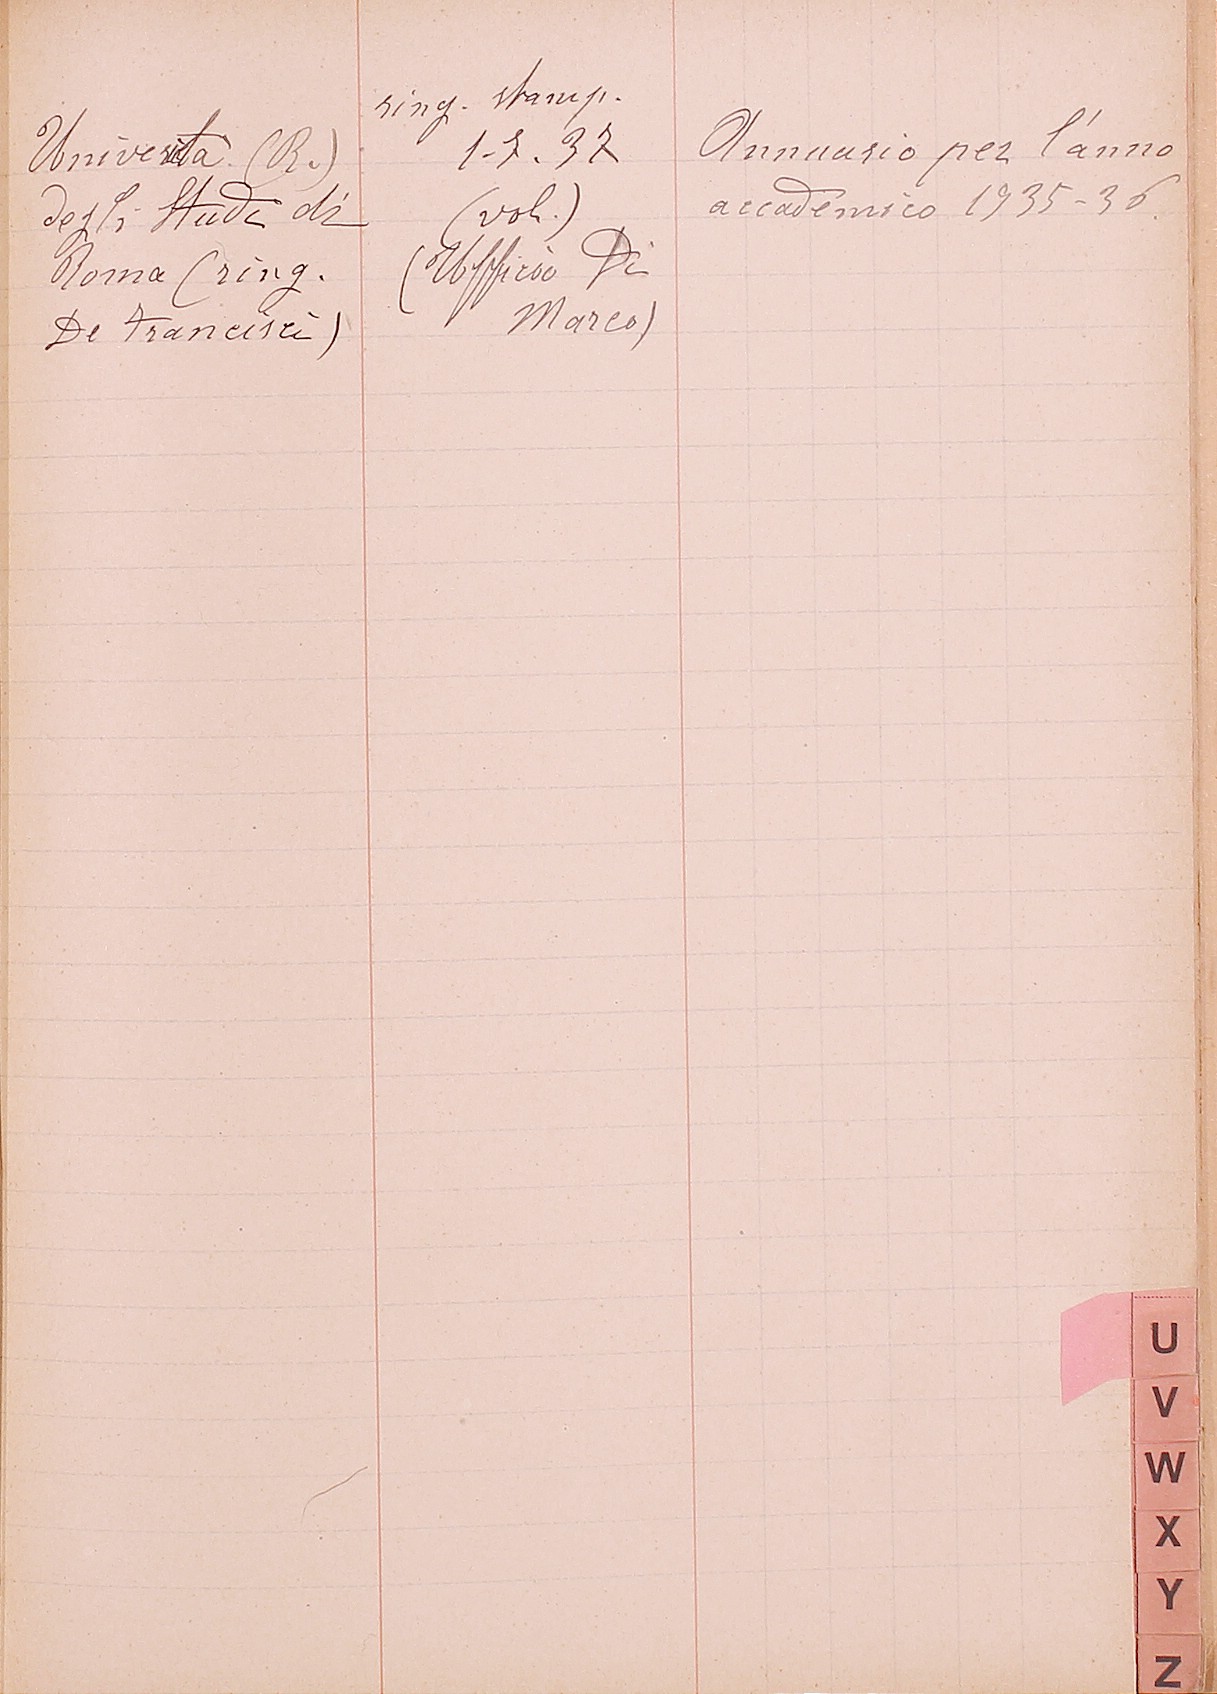 Università (R.)
degli Studi di
Roma (ring.
De Francisci)
ring. stamp.
1-7.37
(vol.)
(Ufficio Di
Marco)
Annuario per l'anno
accademico 1935-36.
U
V
W
X
Y
Z